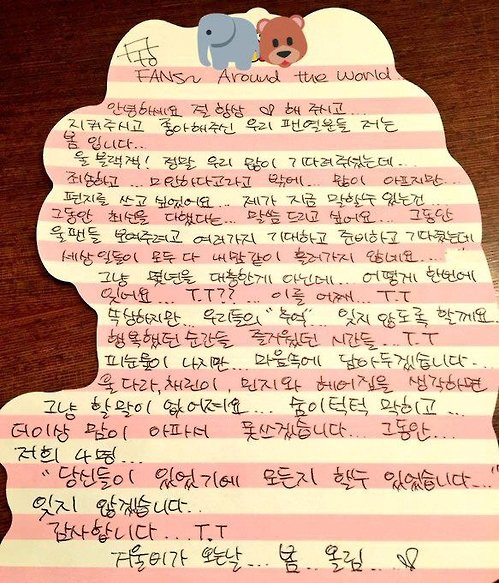 FANS~ Around the world.
안녕하세요 절 항상 ♡ 해 주시고...
지켜주시고 좋아해주신 우리 팬 여러분들 저는
봄 입니다...
울 블랙잭! 정말 우리 많이 기다려주셨는데...
죄송하고... 미안하다고라고 밖에... 많이 아프지만...
편지를 쓰고 싶었어요... 제가 지금 말할수 있는건...
그동안 최선을 다했다는... 말씀 드리고 싶어요... 그동안
울 팬들 보여주려고 여러가지 기대하고 준비하고 기다렸는데
세상일들이 모두 다 내맘같이 흘러가지 않네요...
그냥 몇년을 대충한게 아닌데... 어떻게 한번에
잊어요... T.T?? ... 이를 어째... T.T
속상하지만... 우리들의 "추억"... 잊지 않도록 할께요..
행복했던 순간들 즐거웠던 시간들... T.T
피눈물이 나지만... 마음속에 담아두겠습니다..
울 다라, 채린이, 민지와 헤어짐을 생각하면
그냥 할말이 없어져요... 숨이 턱턱 막히고...
더이상 맘이 아파서 못쓰겠습니다... 그동안...
저희 4명...
"당신들이 있었기에 모든지 할수 있었습니다..."
잊지 않겠습니다..
감사합니다... T.T
겨울비가 오는날... 봄.. 올림... ♡